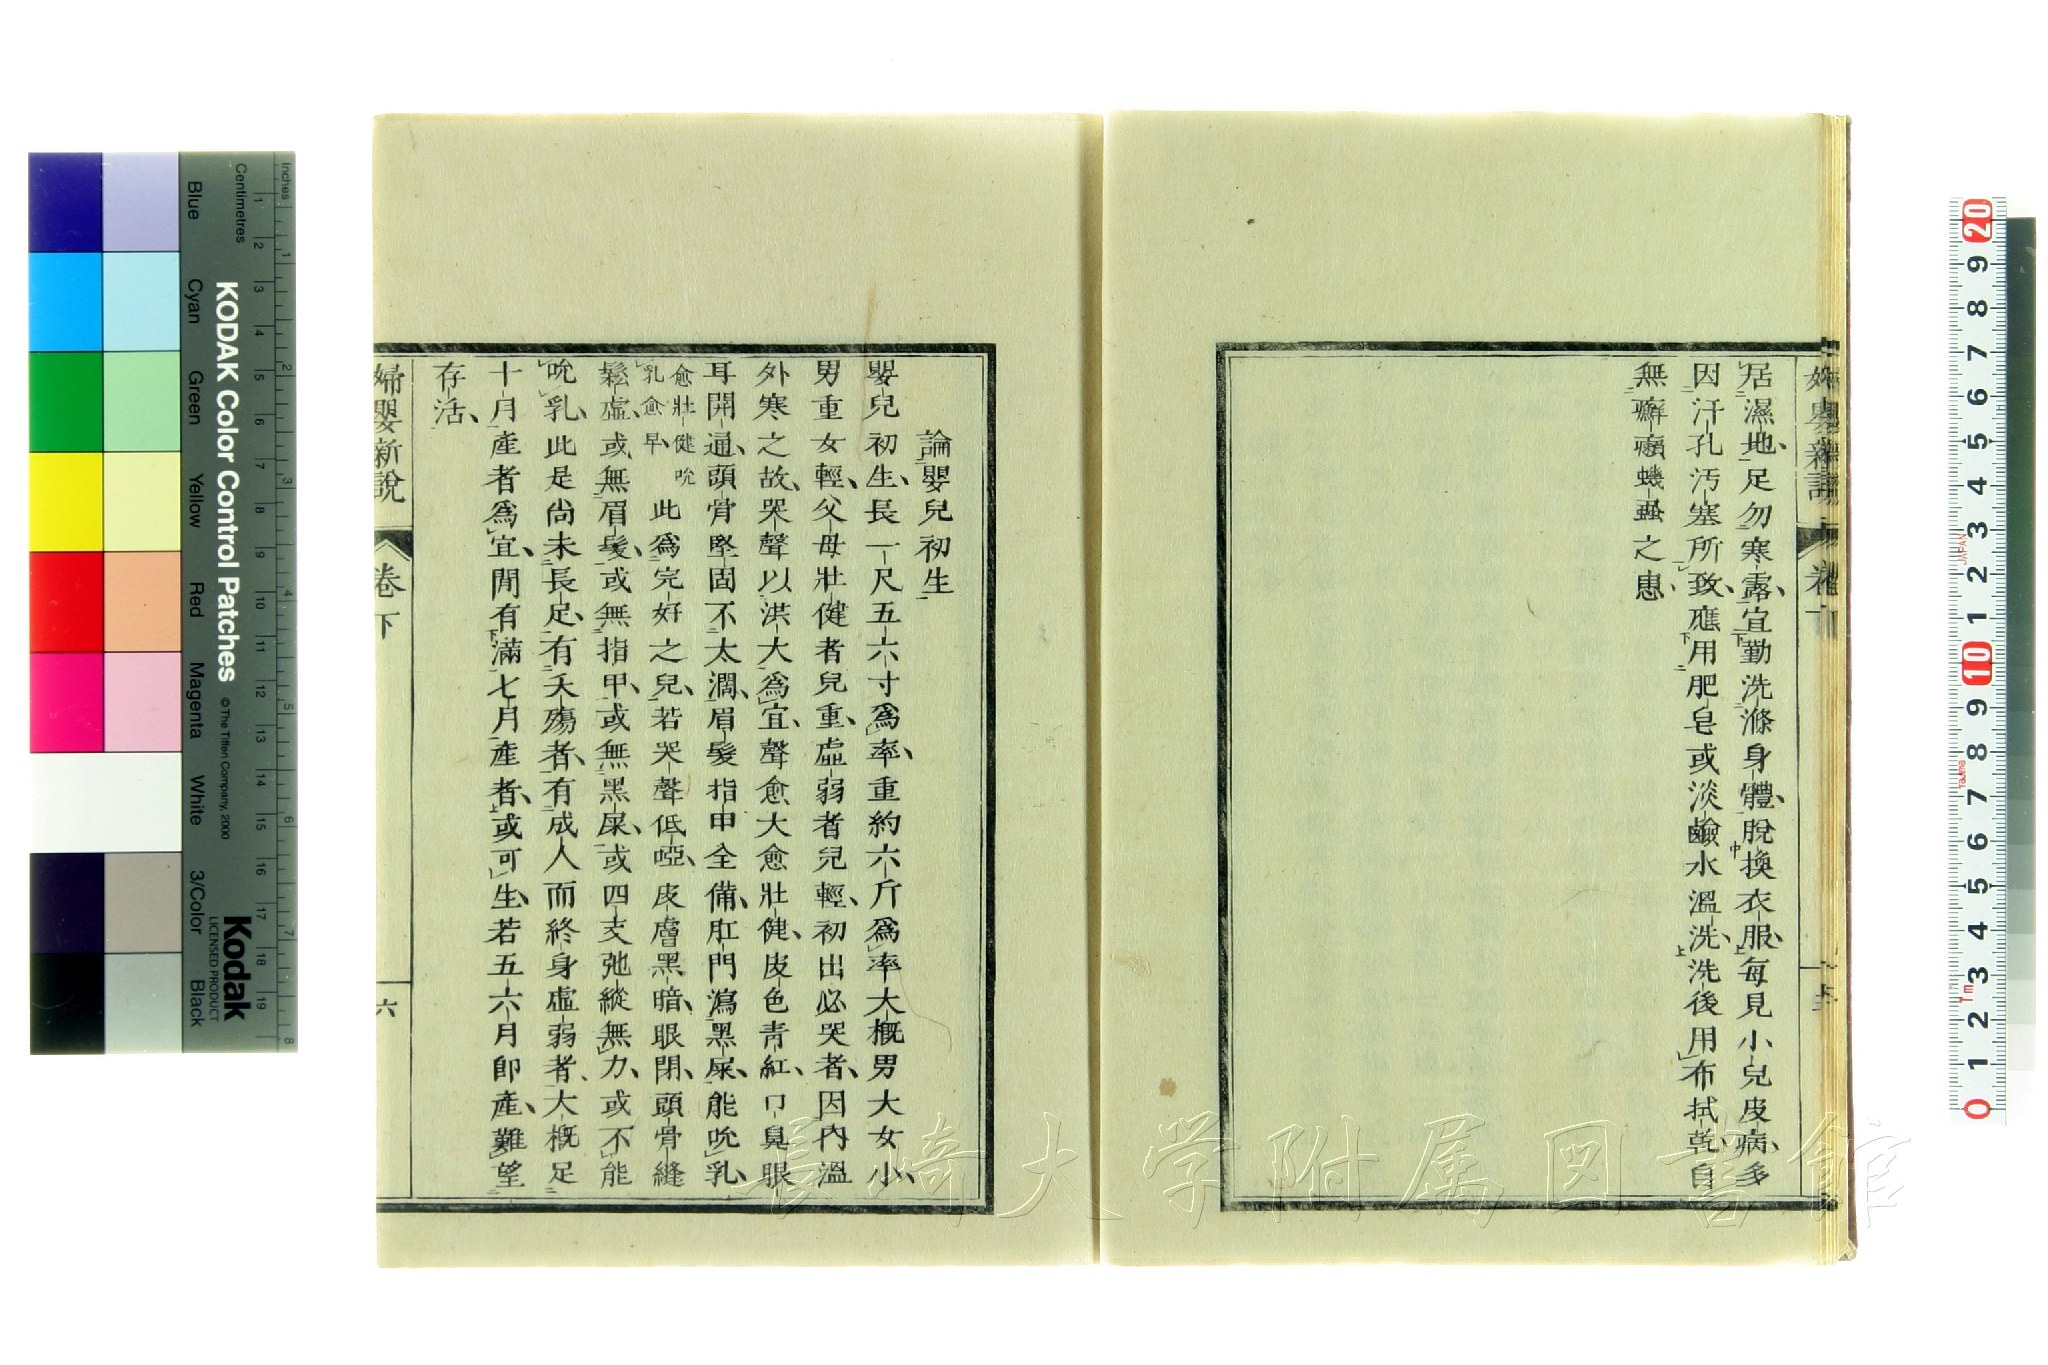 居濕地足勿寒露宜勤洗滌身體脫換衣服每見小兒皮病多
因汗孔污塞所致應用肥皂或淡鹼水溫洗洗後用布拭乾自
無癬癩蟣蝨之患
論嬰兒初生
嬰兒初生長一尺五六寸爲率重約六斤爲率大概男大女小
男重女輕父母壯健者兒重虛弱者兒輕初出必哭者因內溫
外寒之故哭聲以洪大爲宜聲愈大愈壯健皮色青紅口鼻眼
耳開通頭骨堅固不太濶眉髮指甲全備肛門瀉黑屎能吮乳
愈壯健吮
乳愈早
此爲完好之兒若哭聲低啞皮膚黑暗眼閉頭骨縫
鬆虛或無眉髮或無指甲或無黑屎或四支弛縱無力或不能
吮乳此是尙未長足有夭殤者有成人而終身虛弱者大概足
十月產者爲宜閒有滿七月產者或可生若五六月卽產難望
存活
婦嬰新說
卷下
六
長崎大学附属図書館
KODAK Color Control Patches
© The Tiffen Company, 2000
Kodak
LICENSED PRODUCT
Inches
Centimetres
Blue
Cyan
Green
Yellow
Red
Magenta
White
3/Color
Black
1 2 3 4 5 6 7 8 9 10 11 12 13 14 15 16 17 18 19
1 2 3 4 5 6 7 8
20 9 8 7 6 5 4 3 2 1 10 9 8 7 6 5 4 3 2 1 0
JAPAN